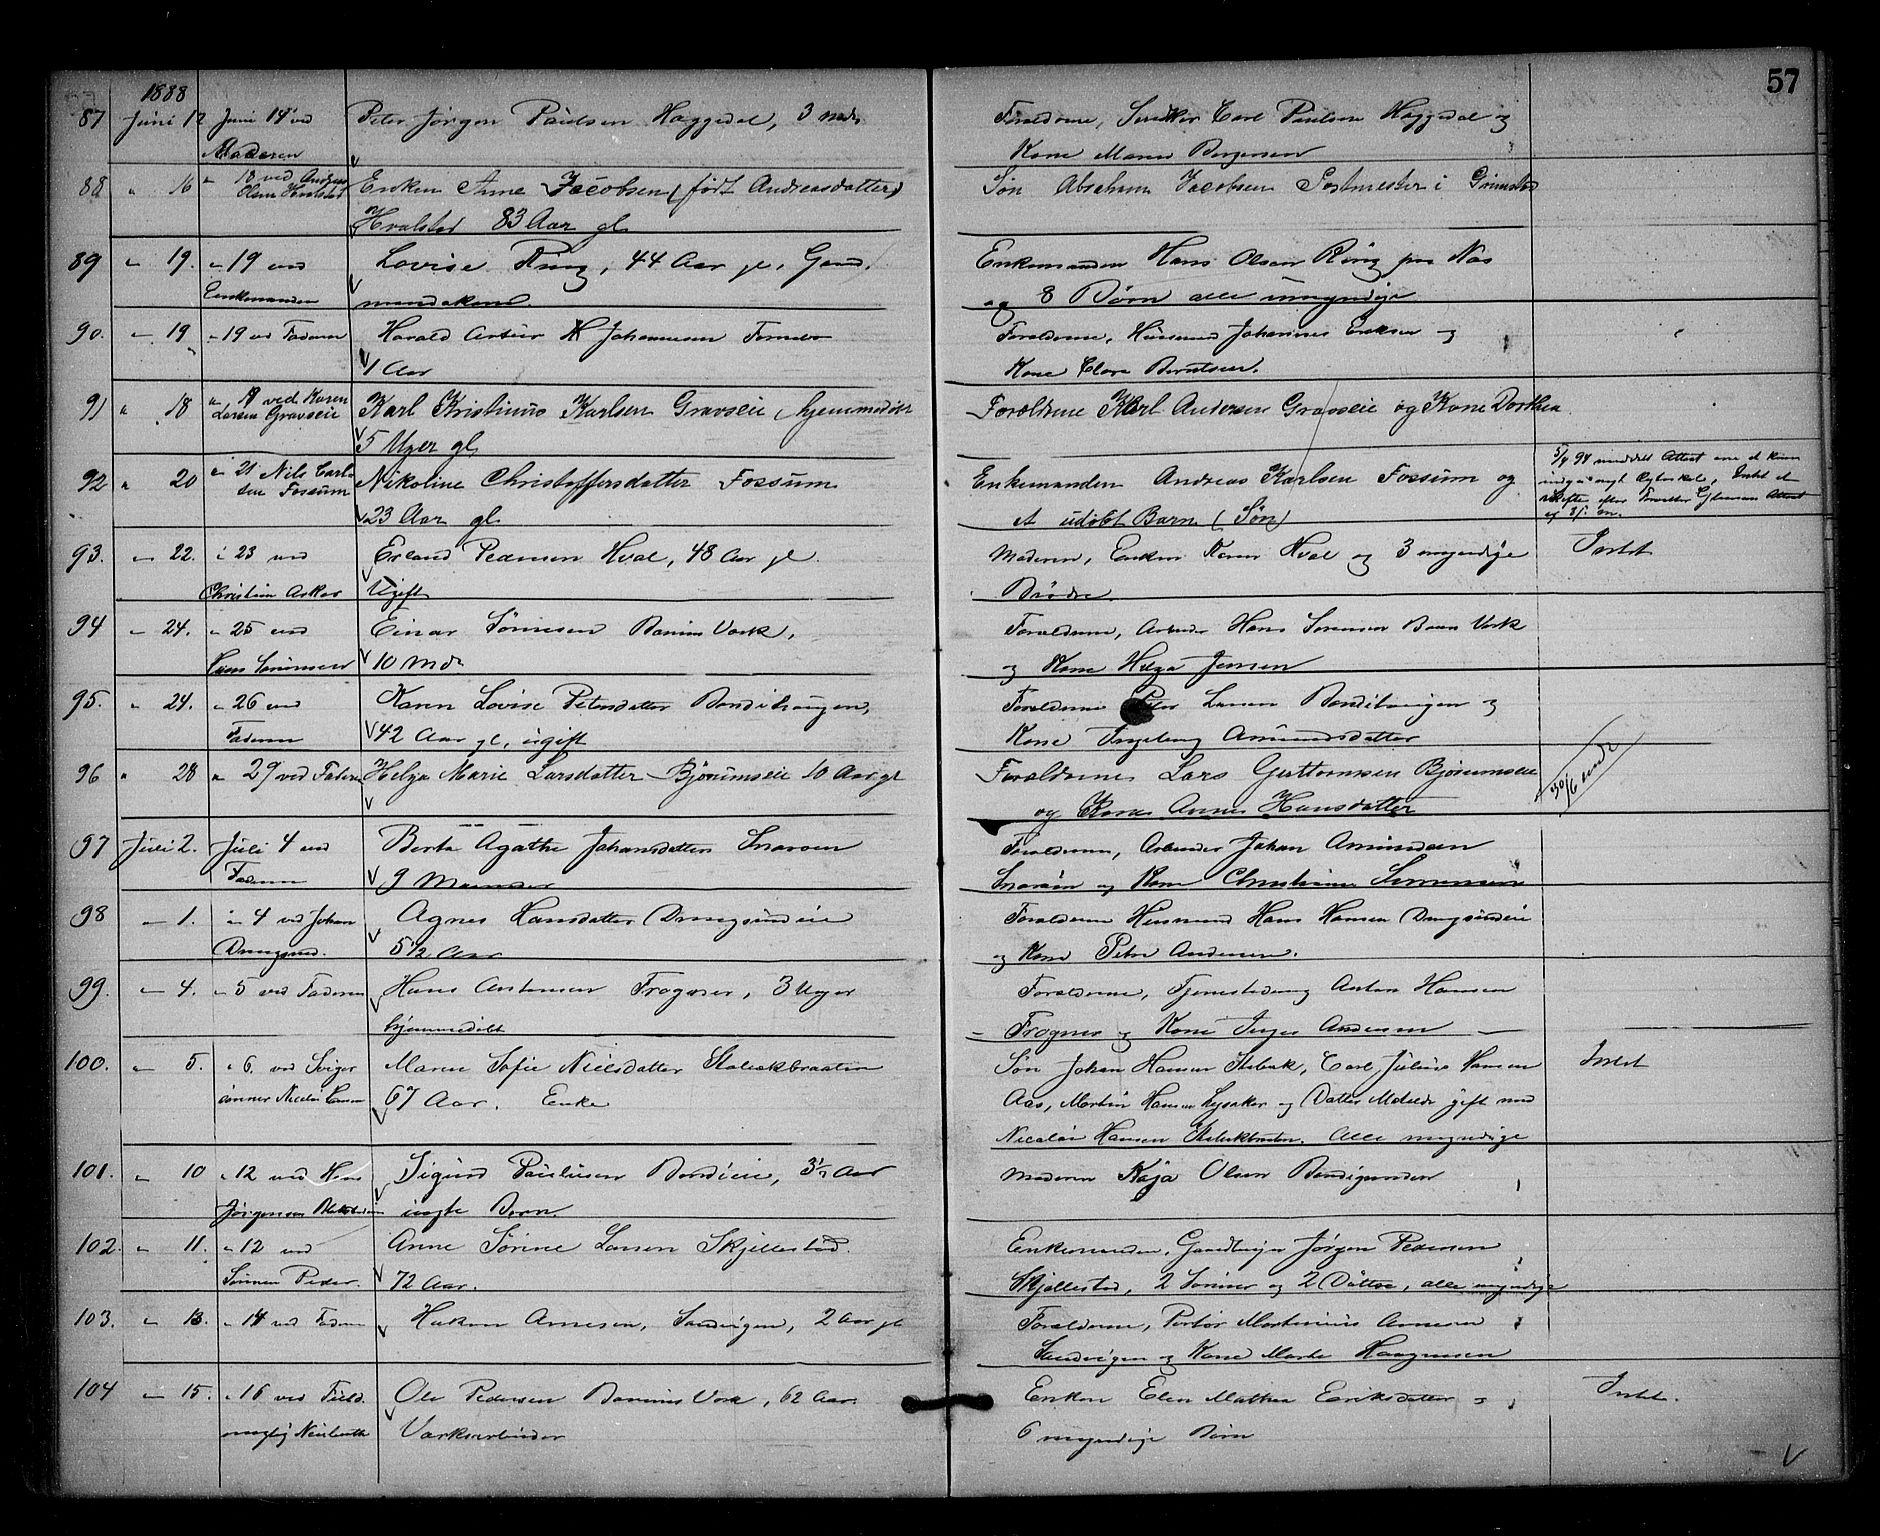 57
1888
87 Juni 12 Juni 14 ved Peter Jørgen Paulsen Haggedal, 3 mdr Forældrene, Carl Paulsen Haggedal og
Faderen Kone Maren Børgersen
88 " 16 " 18 ved Andreas Enken Anne Jacobsen (født Andreasdatter) Søn Abraham Jacobsen Postmester i Grimstad
Olsen Hvalstad Hvalstad 83 Aar gl
89 " 19. " 19 ved Lovise Ring, 44 Aar gl, Gaard- Enkemanden Hans Olsen Ring paa Næs
Enkemanden mandskone. og 8 Børn alle umyndige
90. " 19 " 19 ved Faderen Harald Artur Johannesen Fornebo Forældrene, Husmand Johannes Eriksen og
1 Aar Kone Clara Berntsen.
91 " 18 " 19 ved Karen Karl Kristinus Karlsen Gravseie, hjemmedøbt Forældrene Karl Andersen Gravseie og Kone Dorthea
Larsen Gravseie 5 Uger gl
92 " 20 " 21 Nils Carl- Nikoline Christoffersdatter Fossum Enkemanden Andreas Karlsen Fossum og 5/4 94 meddelt Attest
sen Fossum 23 Aar gl et udøbt Barn (Søn)
93. " 22. " 23 ved Erland Pedersen Hval, 48 Aar gl. Moderen, Enken Karen Hval og 3 myndige Intet
Christian Asker Ugift Brødre.
94 " 24. " 25 ved Einar Sørensen Bærums Værk, Forældrene, Arbeider Hans Sørensen Bærums Værk
Hans Sørensen 10 Mdr og Kone Helga Jensen
95. " 24. " 26 ved Karen Lovise Petersdatter Bondihaugen, Forældrene Peter Larsen Bondihaugen og
Faderen 42 Aar gl, ugift Kone Ingeborg Amundsdatter
96 " 28 " 29 ved Faderen Helga Marie Larsdatter Bjørumseie 10 Aar gl Forældrene Lars Guttormsen Bjørumseie 30/6
og Kone Anne Hansdatter
97 Juli 2. Juli 4 ved Berta Agathe Johansdatter Snarøen Forældrene, Arbeider Johan Amundsen
Faderen 9 Maaneder Snarøen og Kone Christiane Sørensen
98 " 1. " 4 ved Johan Agnes Hansdatter Dringsrudeie Forældrene Husmand Hans Hansen Dringsrudeie
Dringsrud. 5 1/2 Aar og Kone Petra Andersen.
99. " 4. " 5 ved Faderen Hans Antonsen Frogner, 3 Uger Forældrene, Tjenestedreng Anton Hansen
hjemmedøbt Frogner og Kone Inger Andersen
100. " 5. " 6. ved Sviger- Maren Sofie Nielsdatter Stabækbraaten Søn Johan Hansen Stabæk, Carl Julius Hansen Intet
sønner Nicolai Hansen 67 Aar. Enke Aas, Martin Hansen Lysaker og Datter Matilde gift med
Nicolai Hansen Stabækbraaten. Alle myndige
101. " 10 " 12 ved Hans Sigurd Paulusen Bondieie, 3 1/2 Aar Moderen Kaja Olsen Bondigunden
Jørgensen uægte Barn.
102. " 11. " 12 ved Anne Sørine Larsen Skjellestad. Enkemanden, Gaardbruger Jørgen Pedersen
Sønnen Peder. 72 Aar. Skjellestad, 2 Sønner og 2 Døttre, alle myndige
103. " 13. " 14 ved Faderen Hakon Arnesen, Sandvigen, 2 Aar gl Forældrene, Portør Martinius Arnesen
Sandvigen og Kone Marte Haagensen
104 " 15. " 16 ved Fuld- Ole Pedersen Bærums Værk, 62 Aar. Enken Elen Mathea Eriksdatter og Intet.
mægtig Værksarbeider 6 myndige Børn